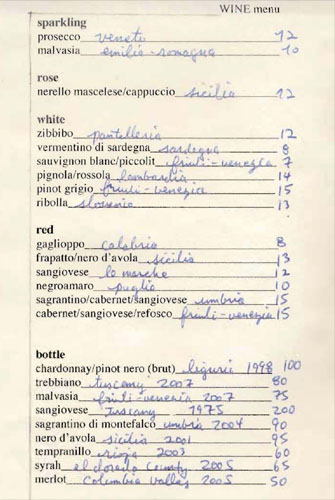 WINE menu
sparkling
prosecco veneto 12
malvasia emilia-romagna 10
rose
nerello mascelese/cappuccio sicilia 12
white
zibbibo pantelleria 12
vermentino di sardegna sardegna 8
sauvignon blanc/piccolit friuli-venezia 7
pignola/rossola lombardia 14
pinot grigio friuli-venezia 15
ribolla slovenia 13
red
gaglioppo calabria 8
frapatto/nero d'avola sicilia 13
sangiovese le marche 12
negroamaro puglia 10
sagrantino/cabernet/sangiovese umbria 15
cabernet/sangiovese/refosco friuli-venezia 15
bottle
chardonnay/pinot nero (brut) liguri 1998 100
trebbiano tuscany 2007 80
malvasia friuli-venezia 2007 75
sangiovese tuscany 1975 200
sagrantino di montefalco umbria 2004 90
nero d'avola sicilia 2001 95
tempranillo rioja 2003 60
syrah el dorado county 2005 65
merlot columbia valley 2005 50